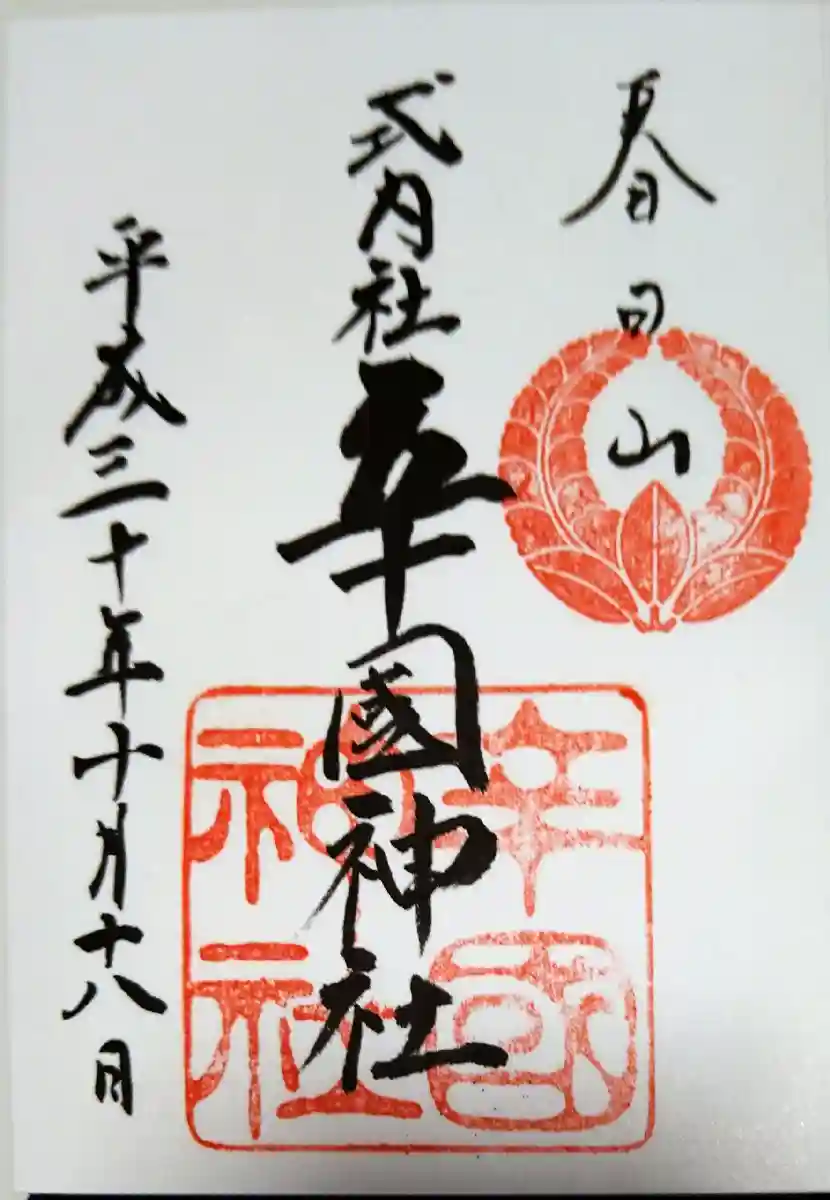 春日山
式内社 辛國神社
平成三十年十月十八日
辛國
神社